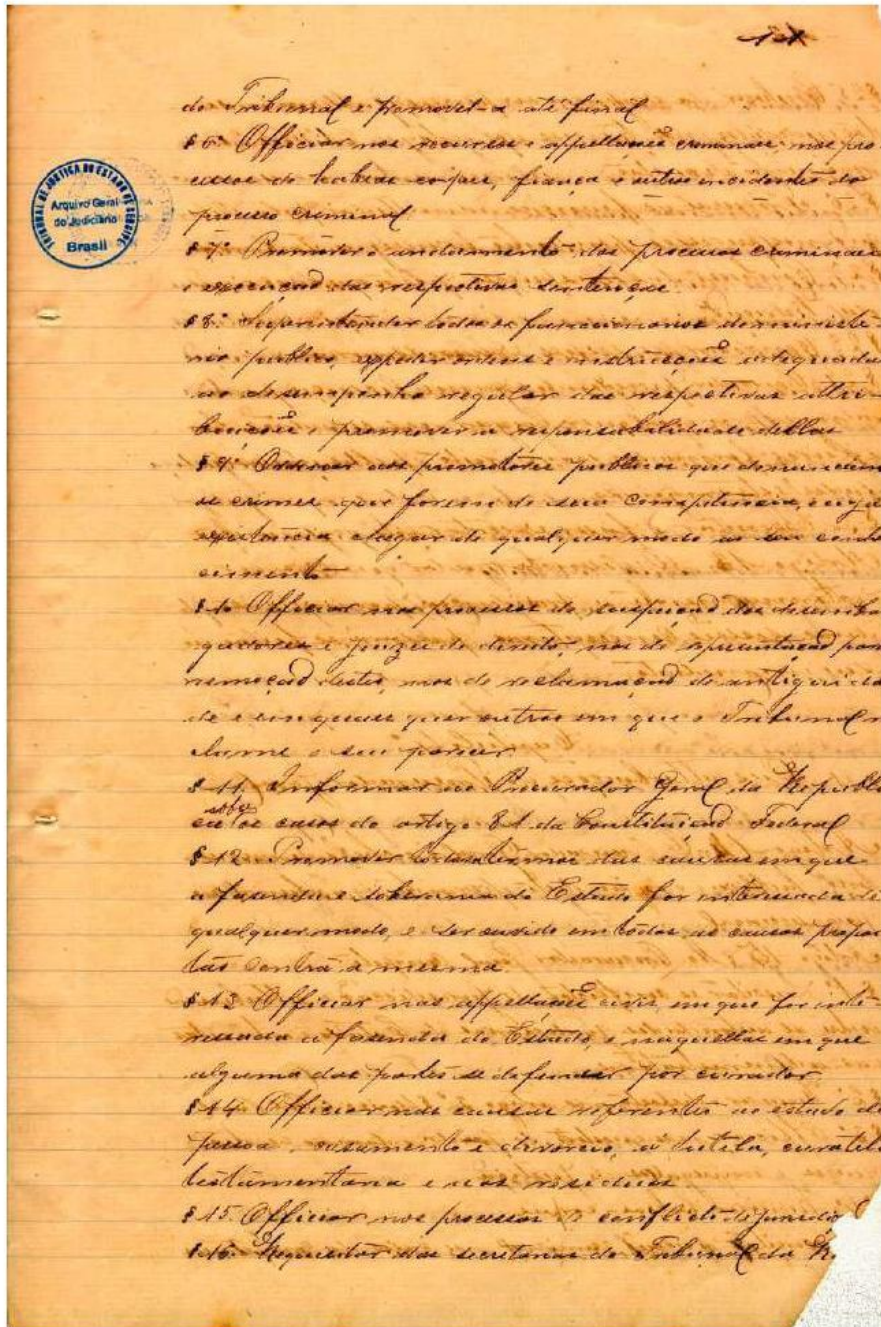 11
do Tribunal e promovel-a até final
§ 6º Officiar nos recursos e appellações criminaes, nos pro
cessos de habeas corpus, fiança e outros incidentes do
processo criminal
§ 7º Promover o andamento dos processos criminaes
e execução das respectivas sentenças.
§ 8º Superintender todos os funccionarios do ministe-
rio publico, expedir ordens e instrucções adequadas
ao desempenho regular das respectivas attri-
buições e promover a responsabilidade delles
§ 9º Ordenar aos promotores publicos que denunciem
os crimes que forem de sua competencia, cuja
existencia chegar de qualquer modo ao seu conhe
cimento
§ 10 Officiar nos processos de suspeição dos desemba
gadores e juizes de direito, nos de apresentação para
remoção destes, nos de reclamação de antiguida
de e em quaes quer outros em que o Tribunal re
clame o seu parecer.
§ 11. Informar ao Procurador Geral da Republi
ca sobre os casos do artigo 81 da Constituição Federal
§ 12 Promover todos os termos das causas em que
a fasenda e soberania do Estado for interessada de
qualquer modo, e ser ouvido em todas as causas propos
tas contra a mesma
§ 13 Officiar nas appellações civis, em que for inte-
ressada a fasenda do Estado, e naquellas em que
alguma das partes se defender por curador
§ 14. Officiar nas causas referentes ao estado de
pessoa, casamento e divorcio, a tutela, curatela
testamentaria e nos residuos
§ 15. Officiar nos processos de conflicto de jurisdic
§ 16. Requisitar das secretarias do Tribunal da Re
TRIBUNAL DE JUSTIÇA DO ESTADO DE SERGIPE
Arquivo Geral
do Judiciário
Brasil